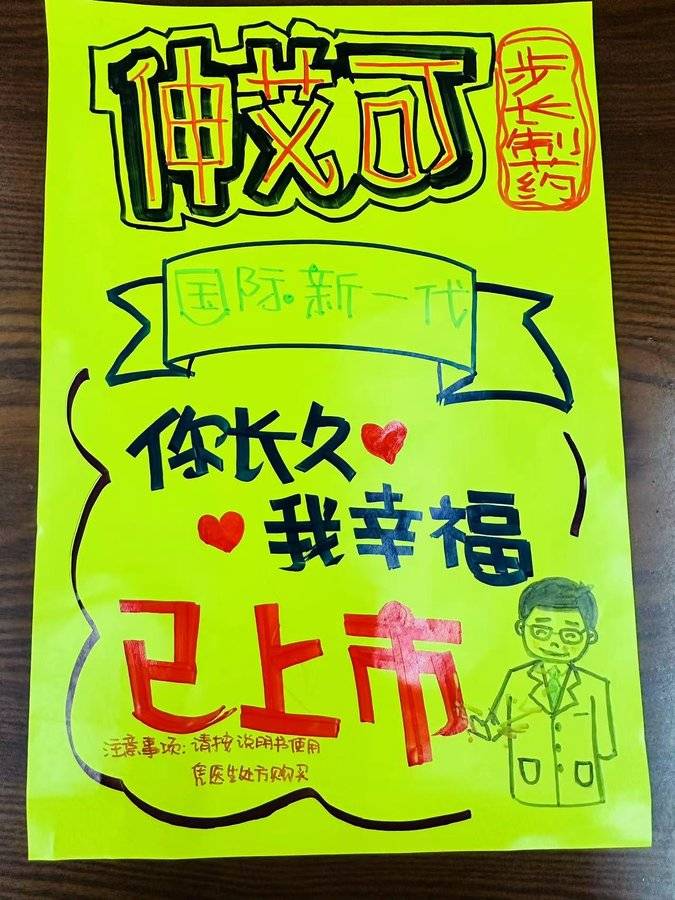 伸艾可
步长制药
国际新一代
你长久
我幸福
已上市
注意事项:请按说明书使用
凭医生处方购买